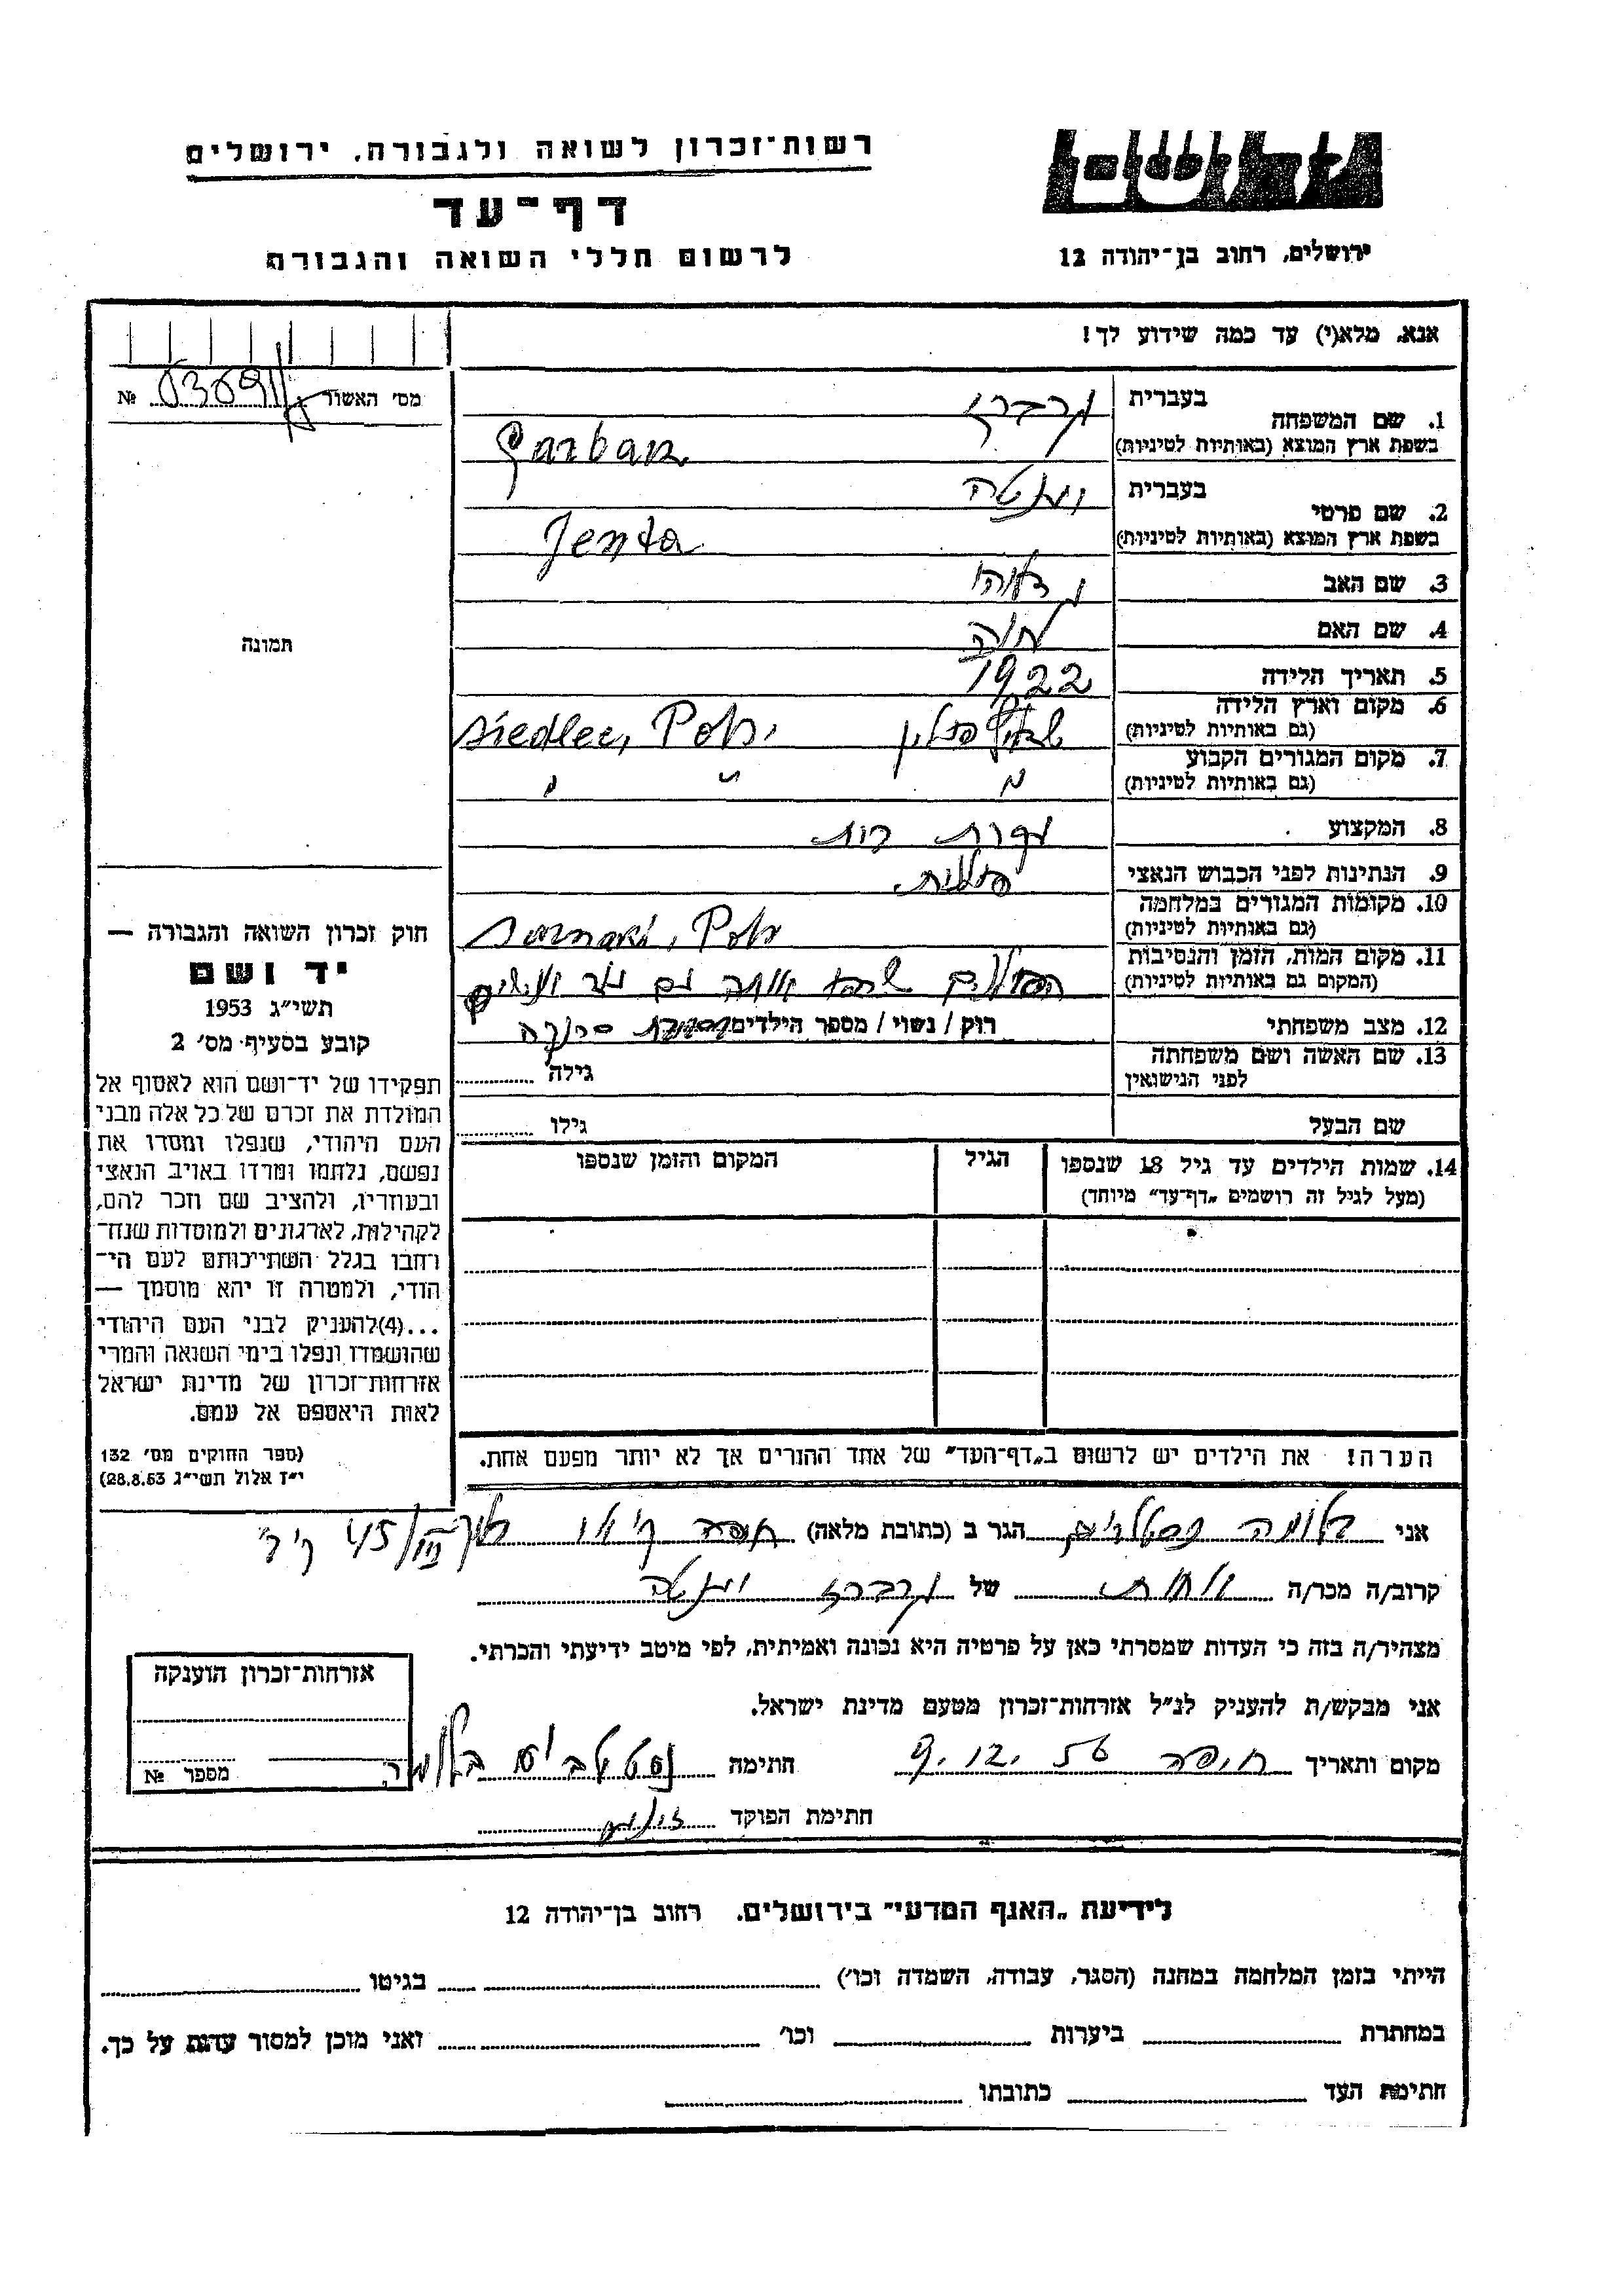 רשות־זכרון לשואה ולגבורה, ירושלים
דף־עד
לרשום חללי השואה והגבורה
ירושלים, רחוב בן־יהודה 12
אנא, מלא(י) עד כמה שידוע לך!
מס' האשור №
1. שם המשפחה בעברית גרברז
בשפת ארץ המוצא (באותיות לטיניות) Garbarz
2. שם פרטי בעברית ינטה
בשפת ארץ המוצא (באותיות לטיניות) Jenta
3. שם האב
4. שם האם חוה
5. תאריך הלידה 1922
6. מקום וארץ הלידה (גם באותיות לטיניות) פולין Siedlce, Pol.
7. מקום המגורים הקבוע (גם באותיות לטיניות)
8. המקצוע עקרת בית
9. הנתינות לפני הכבוש הנאצי פולנית
10. מקומות המגורים במלחמה (גם באותיות לטיניות) Sarnaki, Pol.
11. מקום המות, הזמן והנסיבות (המקום גם באותיות לטיניות) הפולנים
12. מצב משפחתי רוק / נשוי / מספר הילדים
13. שם האשה ושם משפחתה לפני הנישואין גילה
שם הבעל גילו
14. שמות הילדים עד גיל 18 שנספו הגיל המקום והזמן שנספו
(מעל לגיל זה רושמים „דף־עד” מיוחד)
הערה! את הילדים יש לרשום ב„דף־העד” של אחד ההורים אך לא יותר מפעם אחת.
תמונה
חוק זכרון השואה והגבורה —
יד ושם
תשי״ג 1953
קובע בסעיף מס' 2
תפקידו של יד־ושם הוא לאסוף אל
המולדת את זכרם של כל אלה מבני
העם היהודי, שנפלו ומסרו את
נפשם, נלחמו ומרדו באויב הנאצי
ובעוזריו, ולהציב שם וזכר להם,
לקהילות, לארגונים ולמוסדות שנח־
רחבו בגלל השתייכותם לעם הי־
הודי, ולמטרה זו יהא מוסמך —
...(4)להעניק לבני העם היהודי
שהושמדו ונפלו בימי השואה והמרי
אזרחות־זכרון של מדינת ישראל
לאות היאספם אל עמם.
(ספר החוקים מס' 132
י״ז אלול תשי״ג 28.8.53)
אני בלומה הגר ב (כתובת מלאה) חיפה
קרוב/ה מכר/ה אחות של גרברז ינטה
מצהיר/ה בזה כי העדות שמסרתי כאן על פרטיה היא נכונה ואמיתית, לפי מיטב ידיעתי והכרתי.
אני מבקש/ת להעניק לנ״ל אזרחות־זכרון מטעם מדינת ישראל.
מקום ותאריך חיפה 9.12.56 חתימה בלומה
חתימת הפוקד
אזרחות־זכרון הוענקה
מספר №
לידיעת „האגף המדעי” בירושלים. רחוב בן־יהודה 12
הייתי בזמן המלחמה במחנה (הסגר, עבודה, השמדה וכו') בגיטו
במחתרת ביערות וכו' ואני מוכן למסור עדות על כך.
חתימת העד כתובתו